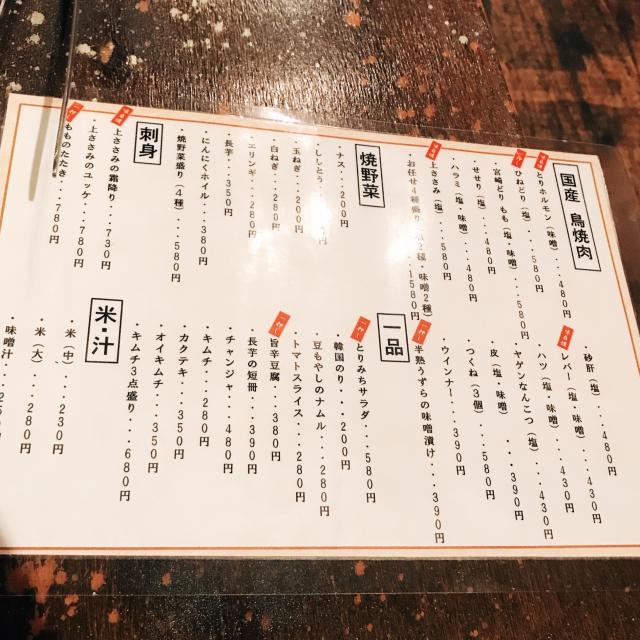 国産 鳥焼肉
・とりホルモン（味噌）...480円
一押し
・ひねどり（塩）...580円
・宮崎どりもも（塩・味噌）...580円
・せせり（塩）...480円
・ハラミ（塩・味噌）...480円
・上ささみ（塩）...580円
・お任せ4種盛り（塩2種・味噌2種）...1580円
・砂肝（塩）...480円
・レバー（塩・味噌）...430円
・ハツ（塩・味噌）...430円
・ヤゲンなんこつ（塩）...430円
・皮（塩・味噌）...390円
・つくね（3個）...580円
・ウインナー...390円
焼野菜
・ナス...200円
・ししとう
・玉ねぎ...200円
・白ねぎ...280円
・エリンギ...280円
・長芋...350円
・にんにくホイル...380円
・焼野菜盛り（4種）...580円
一品
一押し
・半熟うずらの味噌漬け...390円
一押し
・とりみちサラダ...580円
・韓国のり...200円
・豆もやしのナムル...280円
・トマトスライス...280円
一押し
・旨辛豆腐...380円
・長芋の短冊...390円
・チャンジャ...480円
・キムチ...280円
・カクテキ...350円
・オイキムチ...350円
・キムチ3点盛り...680円
刺身
・上ささみの霜降り...730円
・上ささみのユッケ...780円
一押し
・もものたたき...780円
米・汁
・米（中）...230円
・米（大）...280円
・味噌汁...250円